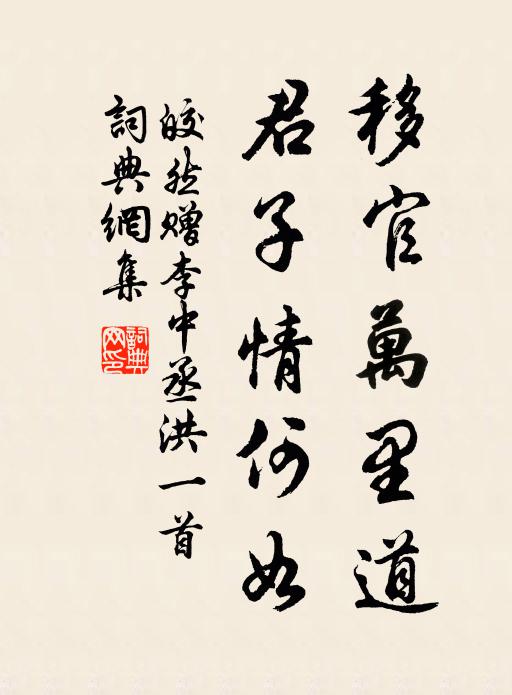 移官萬里道
君子情何如
皎然赠李中丞洪一首
詞典網集
詞典網印